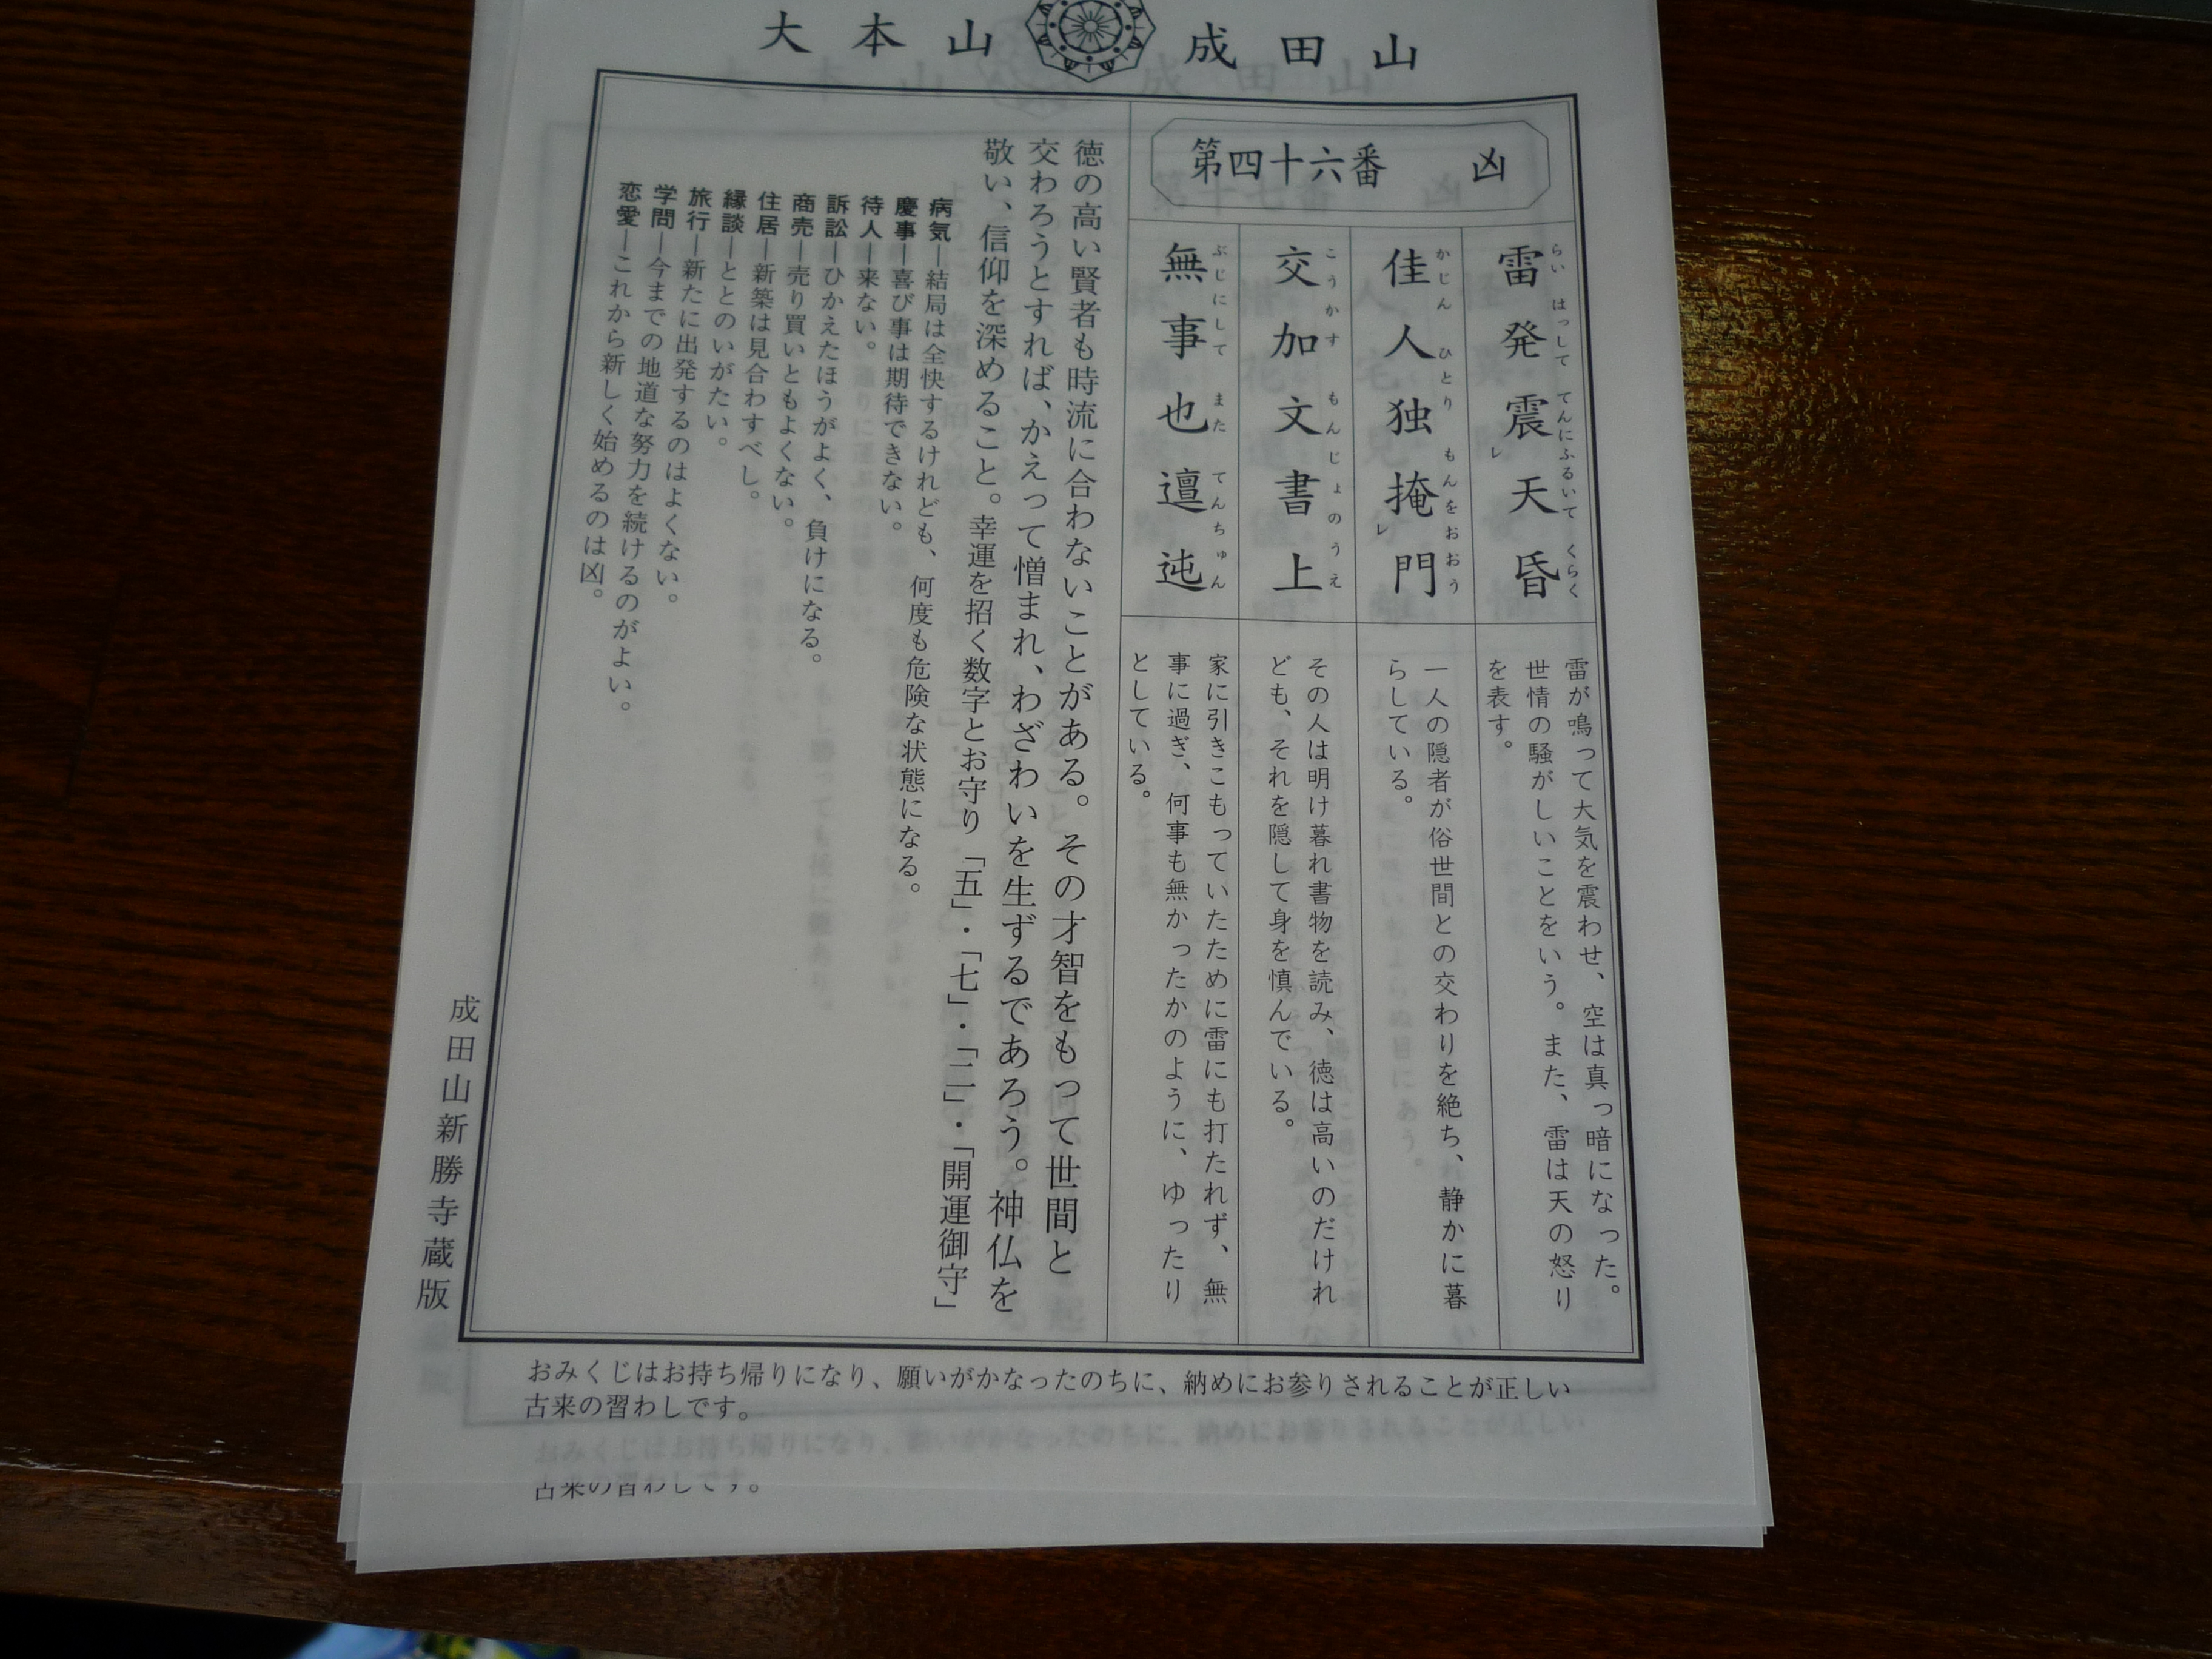 大本山 成田山
第四十六番 凶
雷発震レ天昏
らい はっして てんにふるいて くらく
雷が鳴って大気を震わせ、空は真っ暗になった。
世情の騒がしいことをいう。また、雷は天の怒り
を表す。
佳人独掩レ門
かじん ひとり もんをおおう
一人の隠者が俗世間との交わりを絶ち、静かに暮
らしている。
交加文書上
こうかす もんじょのうえ
その人は明け暮れ書物を読み、徳は高いのだけれ
ども、それを隠して身を慎んでいる。
無事也邅迍
ぶじにして また てんちゅん
家に引きこもっていたために雷にも打たれず、無
事に過ぎ、何事も無かったかのように、ゆったり
としている。
徳の高い賢者も時流に合わないことがある。その才智をもって世間と
交わろうとすれば、かえって憎まれ、わざわいを生ずるであろう。神仏を
敬い、信仰を深めること。幸運を招く数字とお守り「五」・「七」・「二」・「開運御守」
病気―結局は全快するけれども、何度も危険な状態になる。
慶事―喜び事は期待できない。
待人―来ない。
訴訟―ひかえたほうがよく、負けになる。
商売―売り買いともよくない。
住居―新築は見合わすべし。
縁談―ととのいがたい。
旅行―新たに出発するのはよくない。
学問―今までの地道な努力を続けるのがよい。
恋愛―これから新しく始めるのは凶。
成田山新勝寺蔵版
おみくじはお持ち帰りになり、願いがかなったのちに、納めにお参りされることが正しい
古来の習わしです。
古来の習わしです。